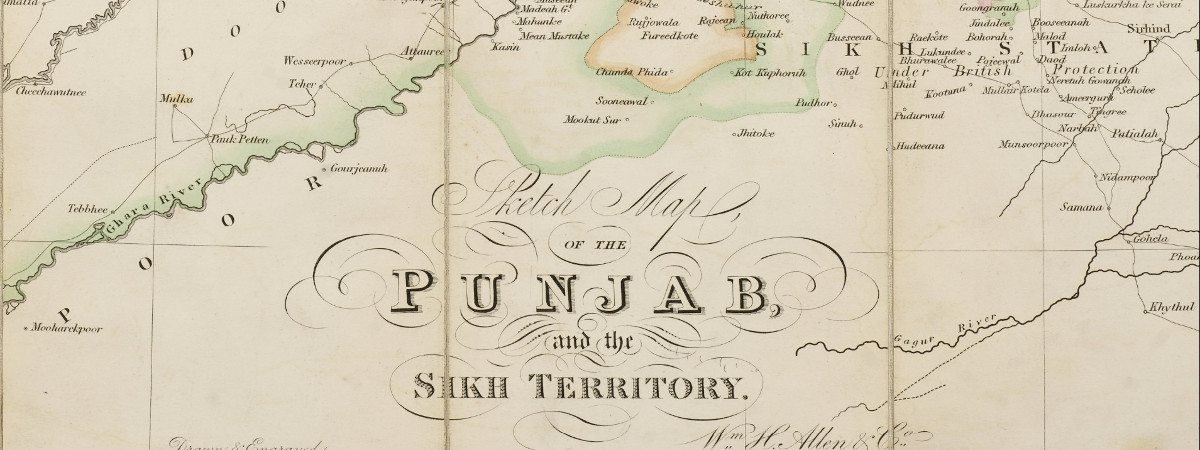 Madeah Gt.
Mahunke
Mean Mustake
Kasin
Attauree
Wesseerpoor
Teher
Checchawutnee
Mulka
Pauk Petten
Gourjeanuh
Tebbhee
Ghara River
Mooharekpoor
D O O
P O O R
Rujjowala
Rajeean
Nuthoree
Fureedkote
Houlak
Chunda Phida
Kot Kuphorah
Sooneawal
Mookut Sur
Jhitoke
Wudnee
Busseean
Ghol
Mihul
Pudhor
Sinuh
Pudurwud
Hudeeana
Goongranuh
Luskurkha ke Serai
Jindalee
Booseeanah
Sirhind
Raekote
Bohorah
Malod
Imloh
Lukundee
Bhurawalee
Pojeewal
Daod
SIKH STAT
Under British Protection
Kootuna
Mullair Kotela
Neretuh Govindah
Scholee
Ameergurh
Bhasour
Tingree
Narbah
Patialah
Munsoorpoor
Nidampoor
Samana
Gohela
Phoa
Khythul
Gagur River
Sketch Map,
OF THE
PUNJAB,
and the
SIKH TERRITORY.
Drawn & Engraved
Wm. H. Allen & Co.